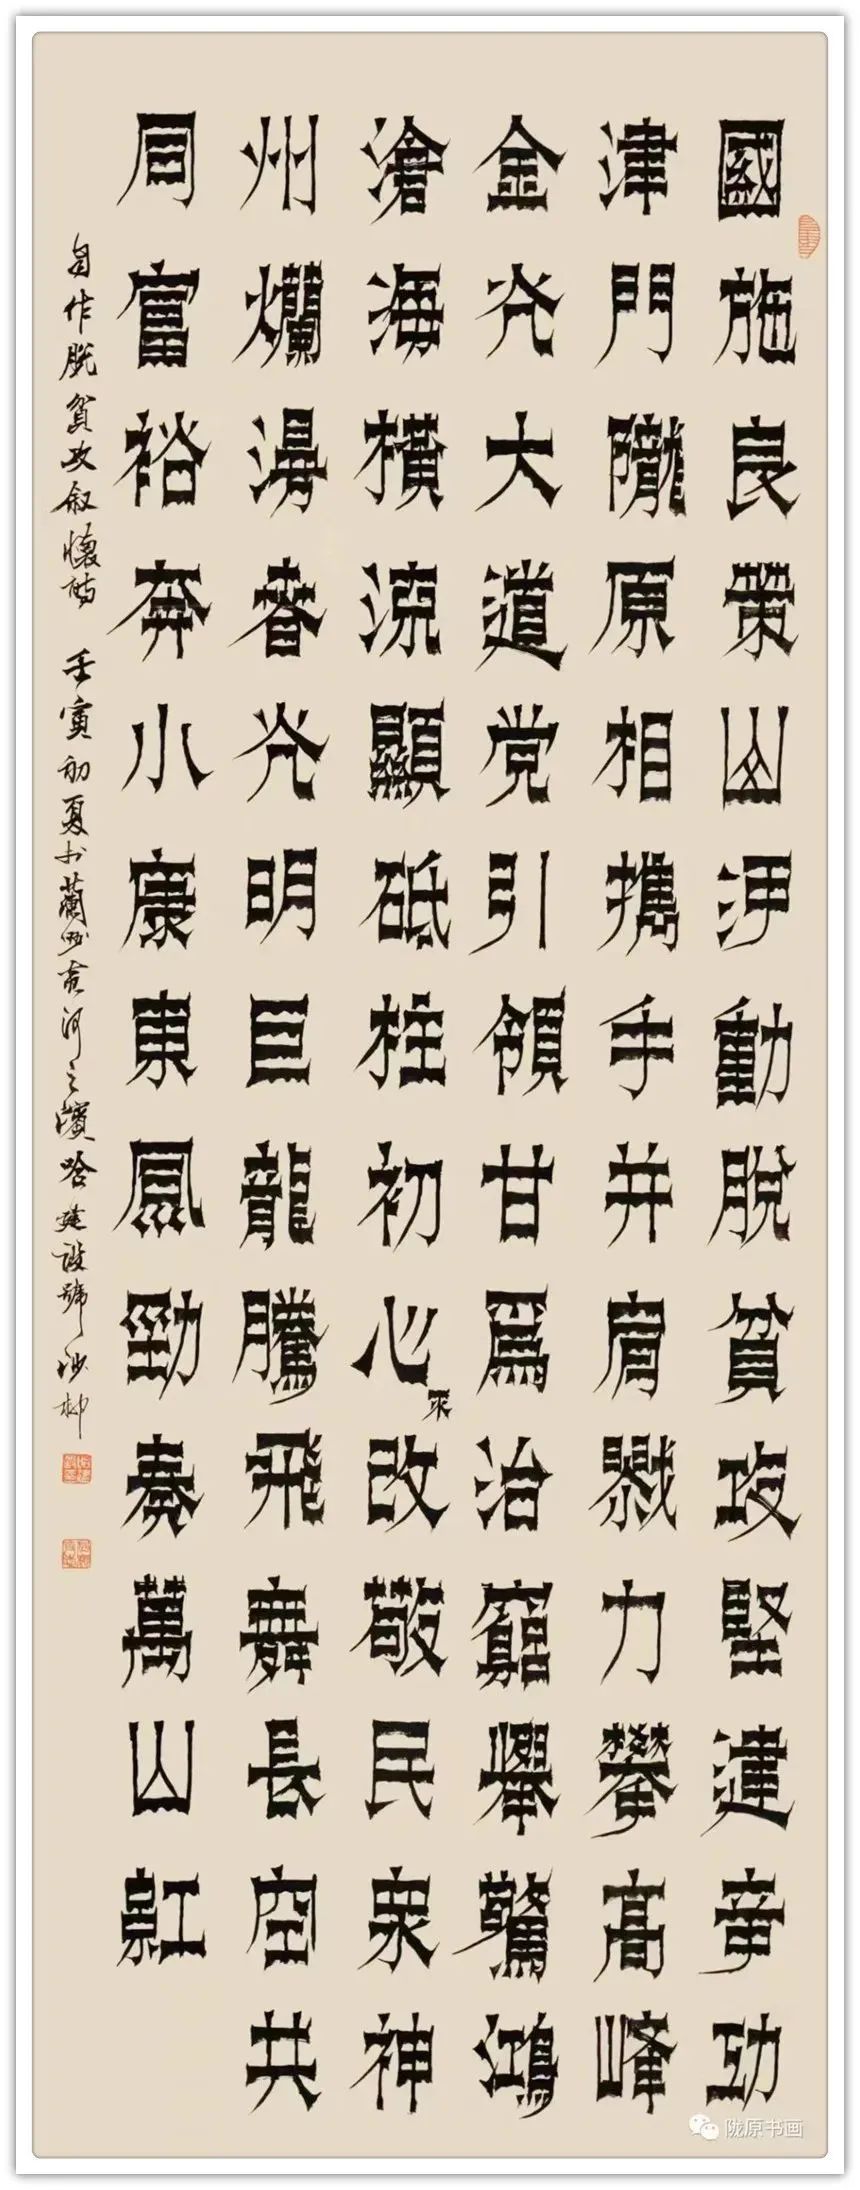 國施良策山河動脫貧攻堅建奇功
津門隴原相攜手并肩勠力攀高峰
金光大道党引領甘爲治窮舉驚鴻
滄海橫流顯砥柱初心不改敬民衆神
州爛漫春光明巨龍騰飛舞長空共
同富裕奔小康東風勁奏萬山紅
自作脫貧攻叙懷詩 壬寅初夏于蘭州黄河之濱哈建設號沙柳
陇原书画